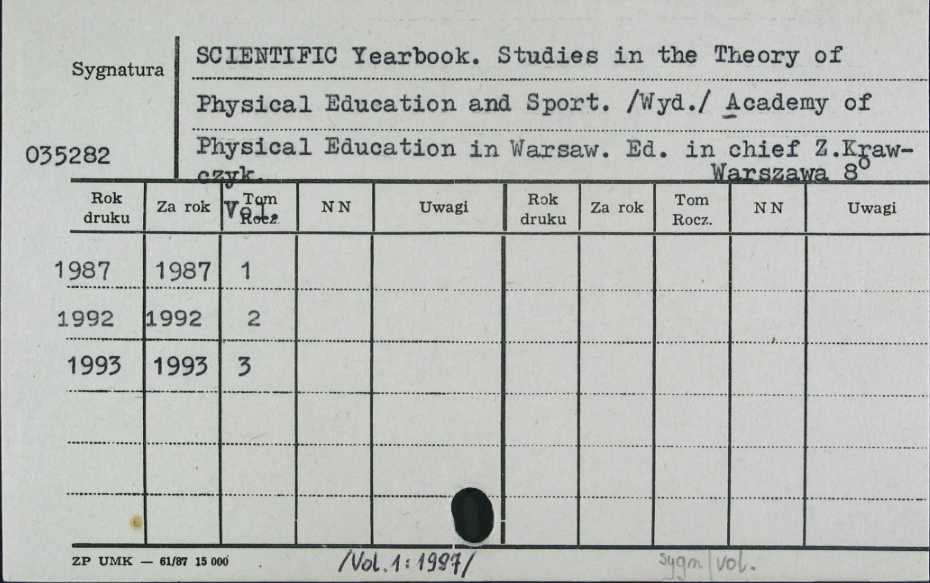 Sygnatura
SCIENTIFIC Yearbook. Studies in the Theory of
Physical Education and Sport. /Wyd./ Academy of
035282
Physical Education in Warsaw. Ed. in chief Z.Kraw-
czyk. Warszawa 8°
Rok druku Za rok Vol. Tom Rocz. NN Uwagi Rok druku Za rok Tom Rocz. NN Uwagi
1987 1987 1
1992 1992 2
1993 1993 3
ZP UMK — 61/87 15 000 /Vol. 1: 1987/ sygn/vol.